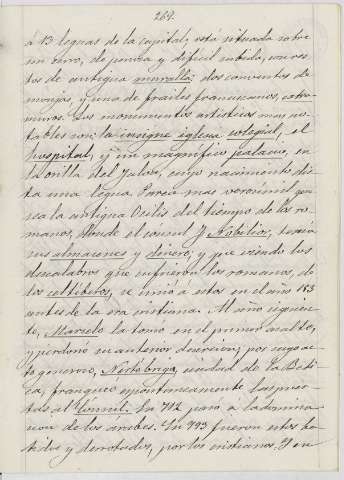 264.
á 13 leguas de la capital, está situada sobre
un cerro, de penosa y dificil subida, con res-
tos de antigua muralla; dos conventos de
monjas, y uno de frailes franciscanos, extra-
muros. Los monumentos artísticos mas no-
tables son: la insigne iglesia colegial, el
hospital, y un magnífico palacio, en
la orilla del Jalon, cuyo nacimiento dis-
ta una legua. Parece mas verosimil que
sea la antigua Ocilis del tiempo de los ro-
manos, donde el consul F. Nobilior, tenia
sus almacenes y dinero; y que viendo los
descalabros que sufrieron los romanos, de
los celtíberos, se unió á estos en el año 153
antes de la era cristiana. Al año siguien-
te, Marcelo la tomó en el primer asalto,
y perdonó su anterior desercion; por cuyo ac-
to generoso, Nertóbriga, ciudad de la Béti-
ca, franqueó espontáneamente las puer-
tas al Consul. En 712 pasó á la domina-
cion de los árabes. En 993 fueron estos ba-
tidos y derrotados, por los cristianos. Y en